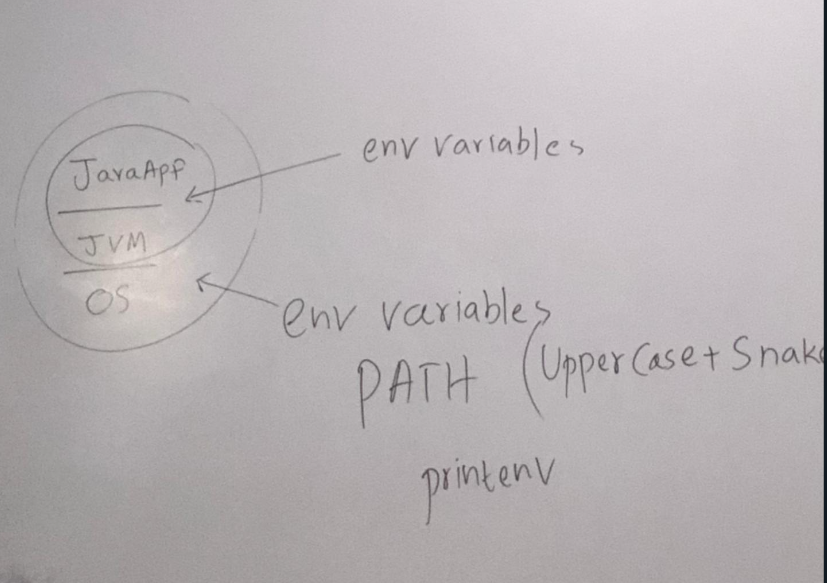 JavaApp
JVM
OS
env variables
env variables
PATH (UpperCase+ Snak
printenv